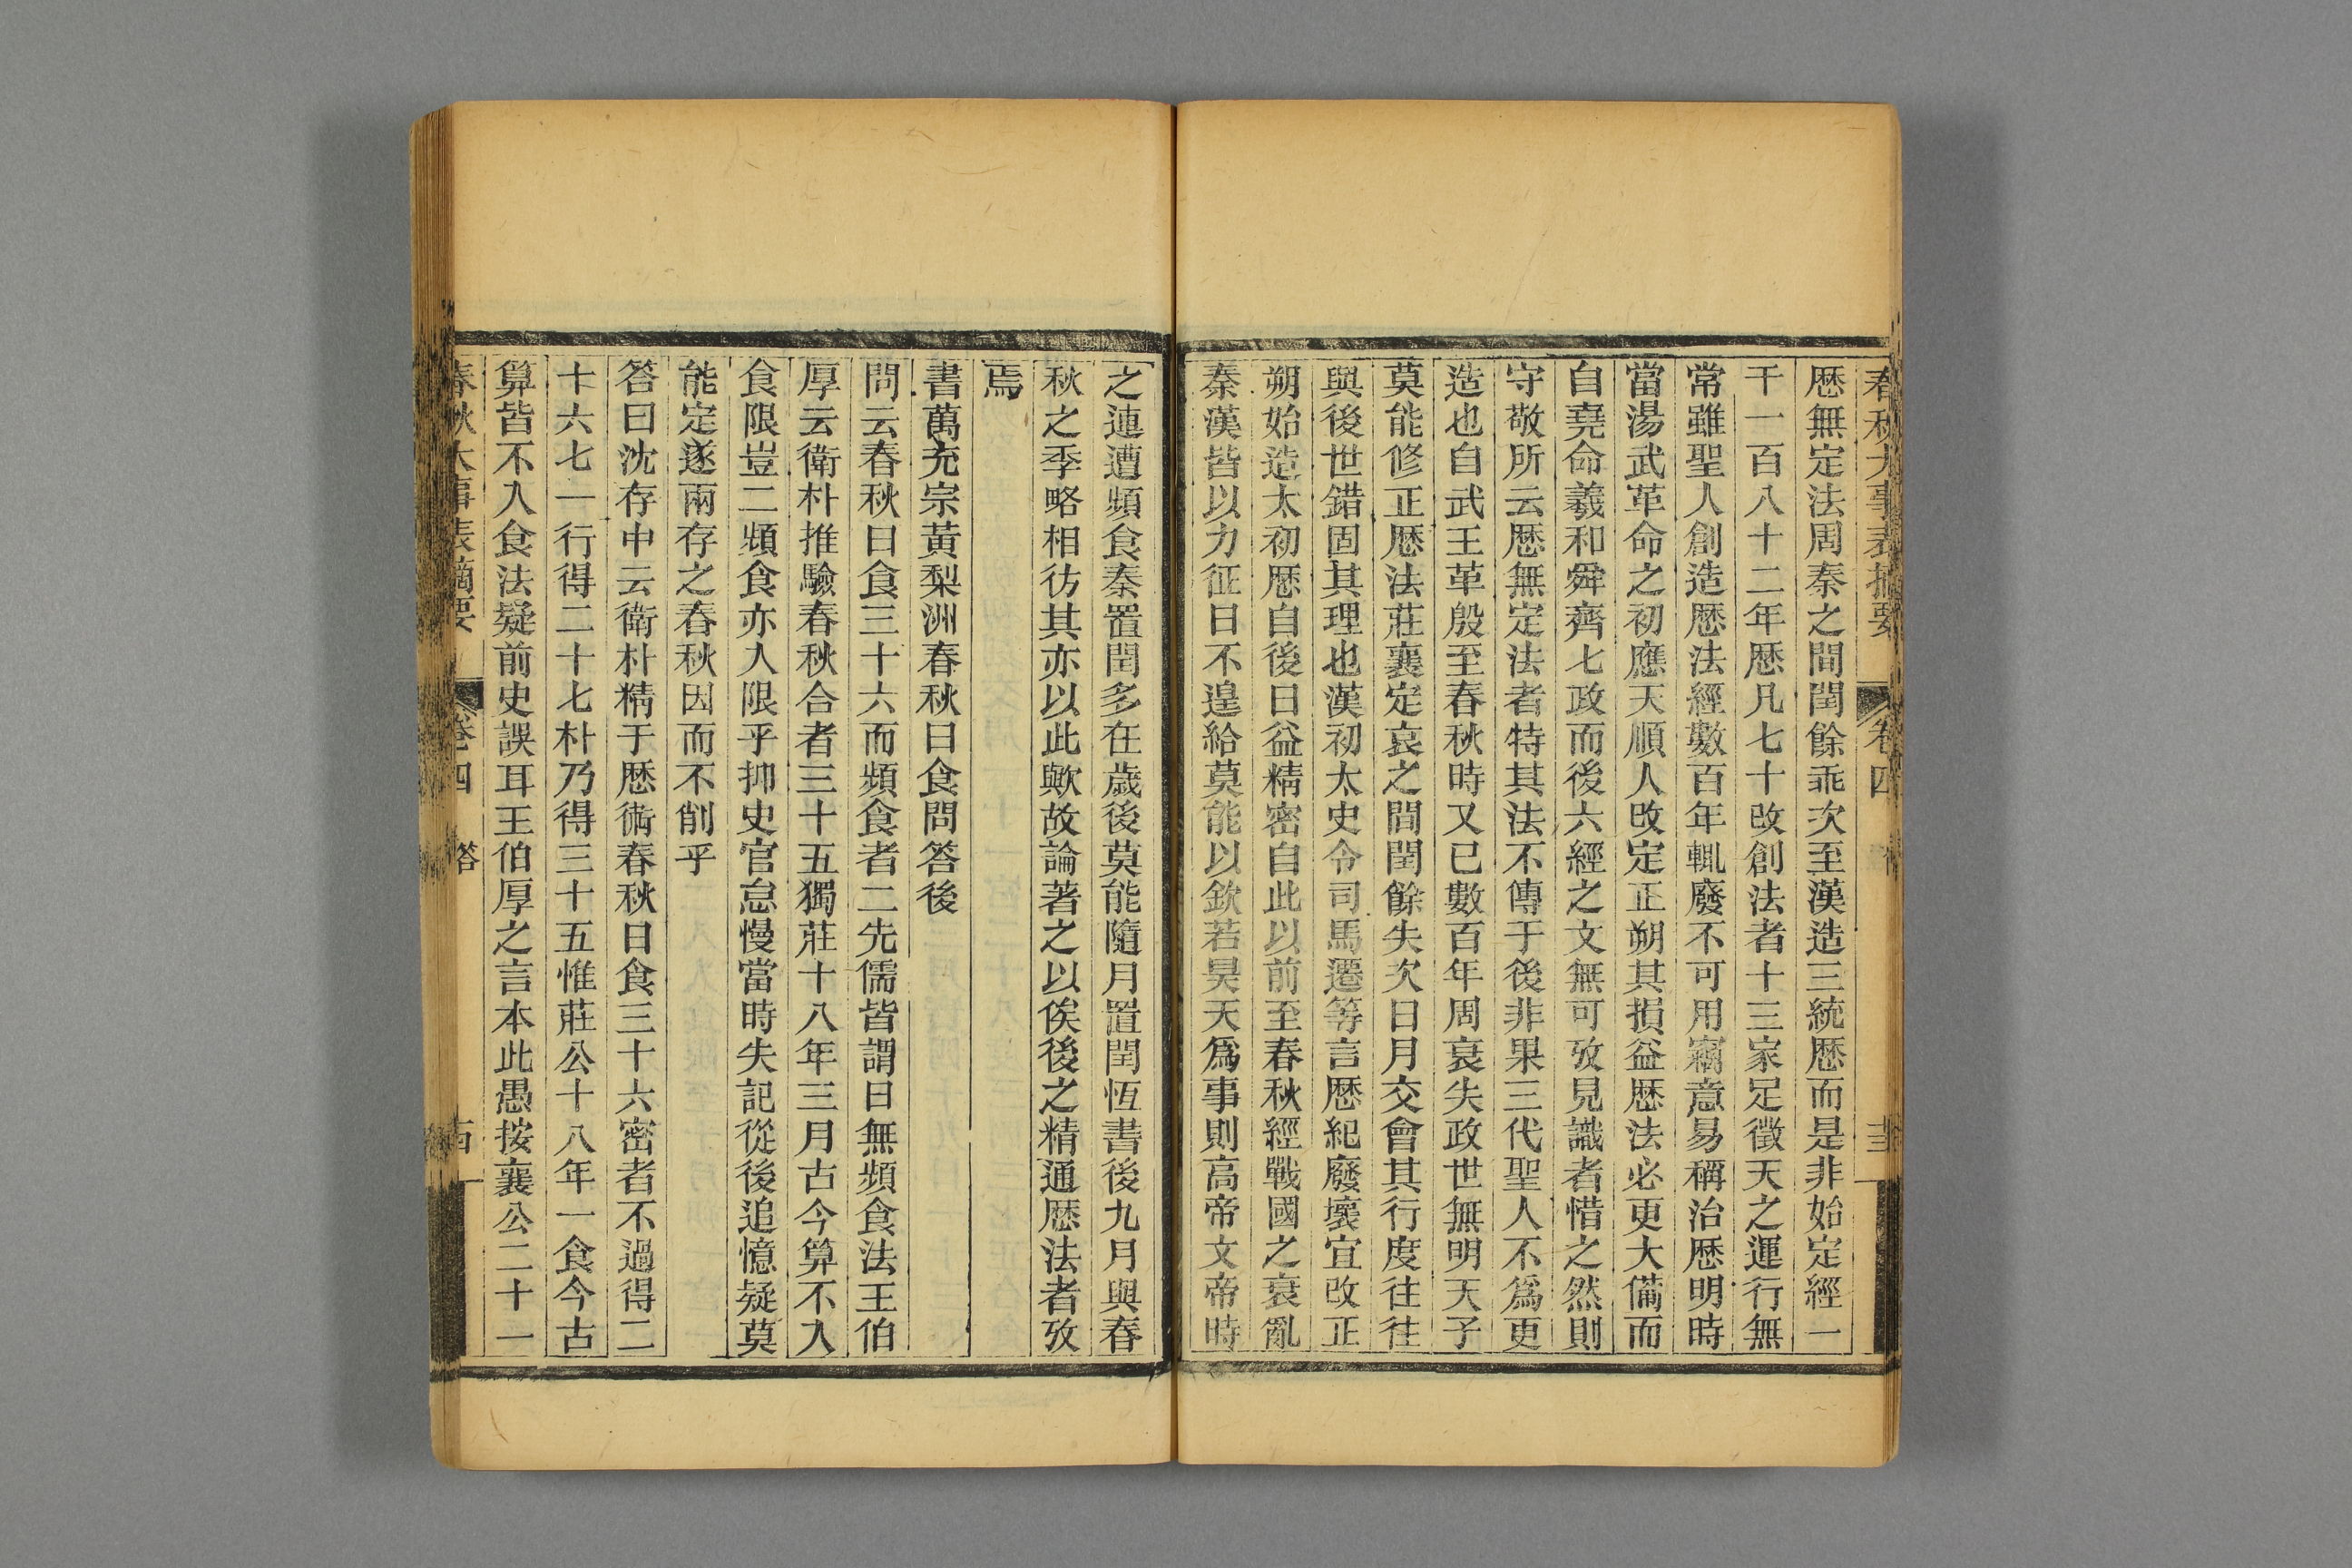 春秋大事表摘要 卷四
歷無定法周秦之間閏餘乖次至漢造三統歷而是非始定經一
千一百八十二年歷凡七十改創法者十三家足徵天之運行無
常雖聖人創造歷法經數百年輒廢不可用竊意易稱治歷明時
當湯武革命之初應天順人改定正朔其損益歷法必更大備而
自堯命羲和舜齊七政而後六經之文無可攷見識者惜之然則
守敬所云歷無定法者特其法不傳于後非果三代聖人不爲更
造也自武王革殷至春秋時又已數百年周衰失政世無明天子
莫能修正歷法莊襄定哀之間閏餘失次日月交會其行度往往
與後世錯固其理也漢初太史令司馬遷等言歷紀廢壞宜改正
朔始造太初歷自後日益精密自此以前至春秋經戰國之衰亂
秦漢皆以力征日不遑給莫能以欽若昊天爲事則高帝文帝時
之連遭頻食秦置閏多在歲後莫能隨月置閏恆書後九月與春
秋之季略相彷其亦以此歟故論著之以俟後之精通歷法者攷
焉
書萬充宗黃梨洲春秋日食問答後
問云春秋日食三十六而頻食者二先儒皆謂日無頻食法王伯
厚云衛朴推驗春秋合者三十五獨莊十八年三月古今算不入
食限豈二頻食亦入限乎抑史官怠慢當時失記從後追憶疑莫
能定遂兩存之春秋因而不削乎
答曰沈存中云衛朴精于歷術春秋日食三十六密者不過得二
十六七一行得二十七朴乃得三十五惟莊公十八年一食今古
算皆不入食法疑前史誤耳王伯厚之言本此愚按襄公二十一
春秋大事表摘要 卷四 答